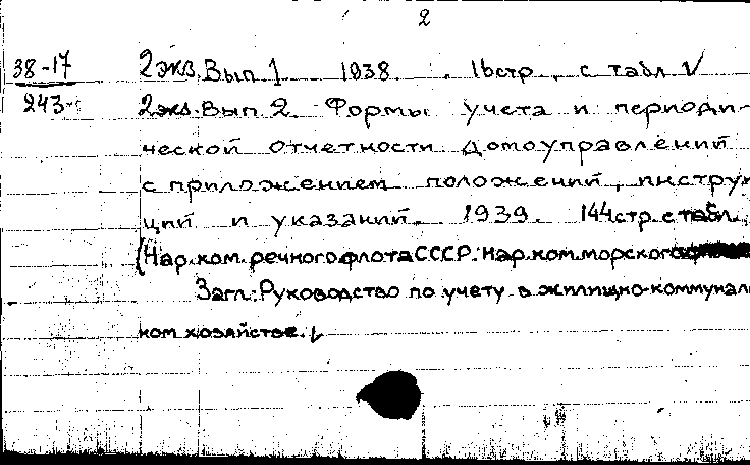 2
38-17 2экз. Вып 1 1938. 16стр, с табл. V
243- 2экз. Вып 2. Формы учета и периоди-
ческой отчетности домоуправлений
с приложением положений, инструк
ций и указаний. 1939. 144стр. с табл.
(Нар.ком.речного флота СССР. Нар.ком.морского
Загл.: Руководство по учету в жилищно-коммунал
ком хозяйстве.